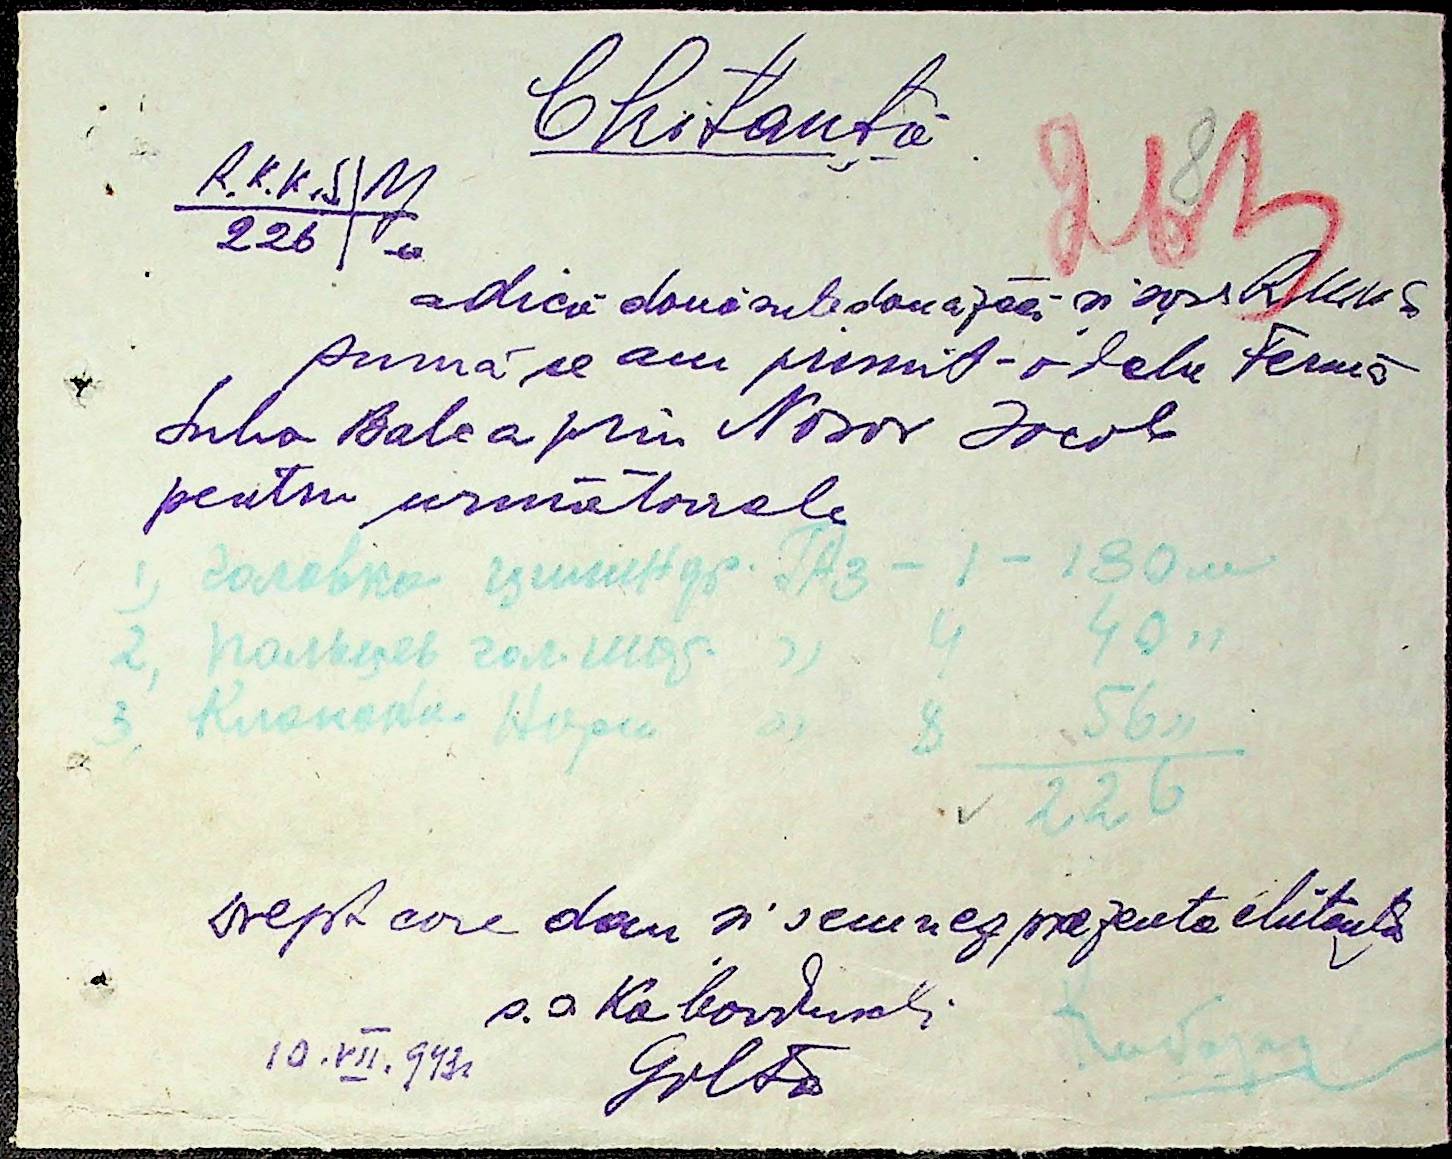 Chitanță
R.K.K.S. M
226
adică două sute douăzeci și șase R.K.K.S
suma ce am primit-o dela Ferma
Suha Balca prin Nosov Iacob
pentru următoarele
1, головка цилиндр. ГАЗ - 1 - 130 м
2, Пальцев гол. " 4 40 "
3, Клапана " 8 56 "
226
drept care dau și semnez prezenta chitanță
s.a
10.VII.943
Golta